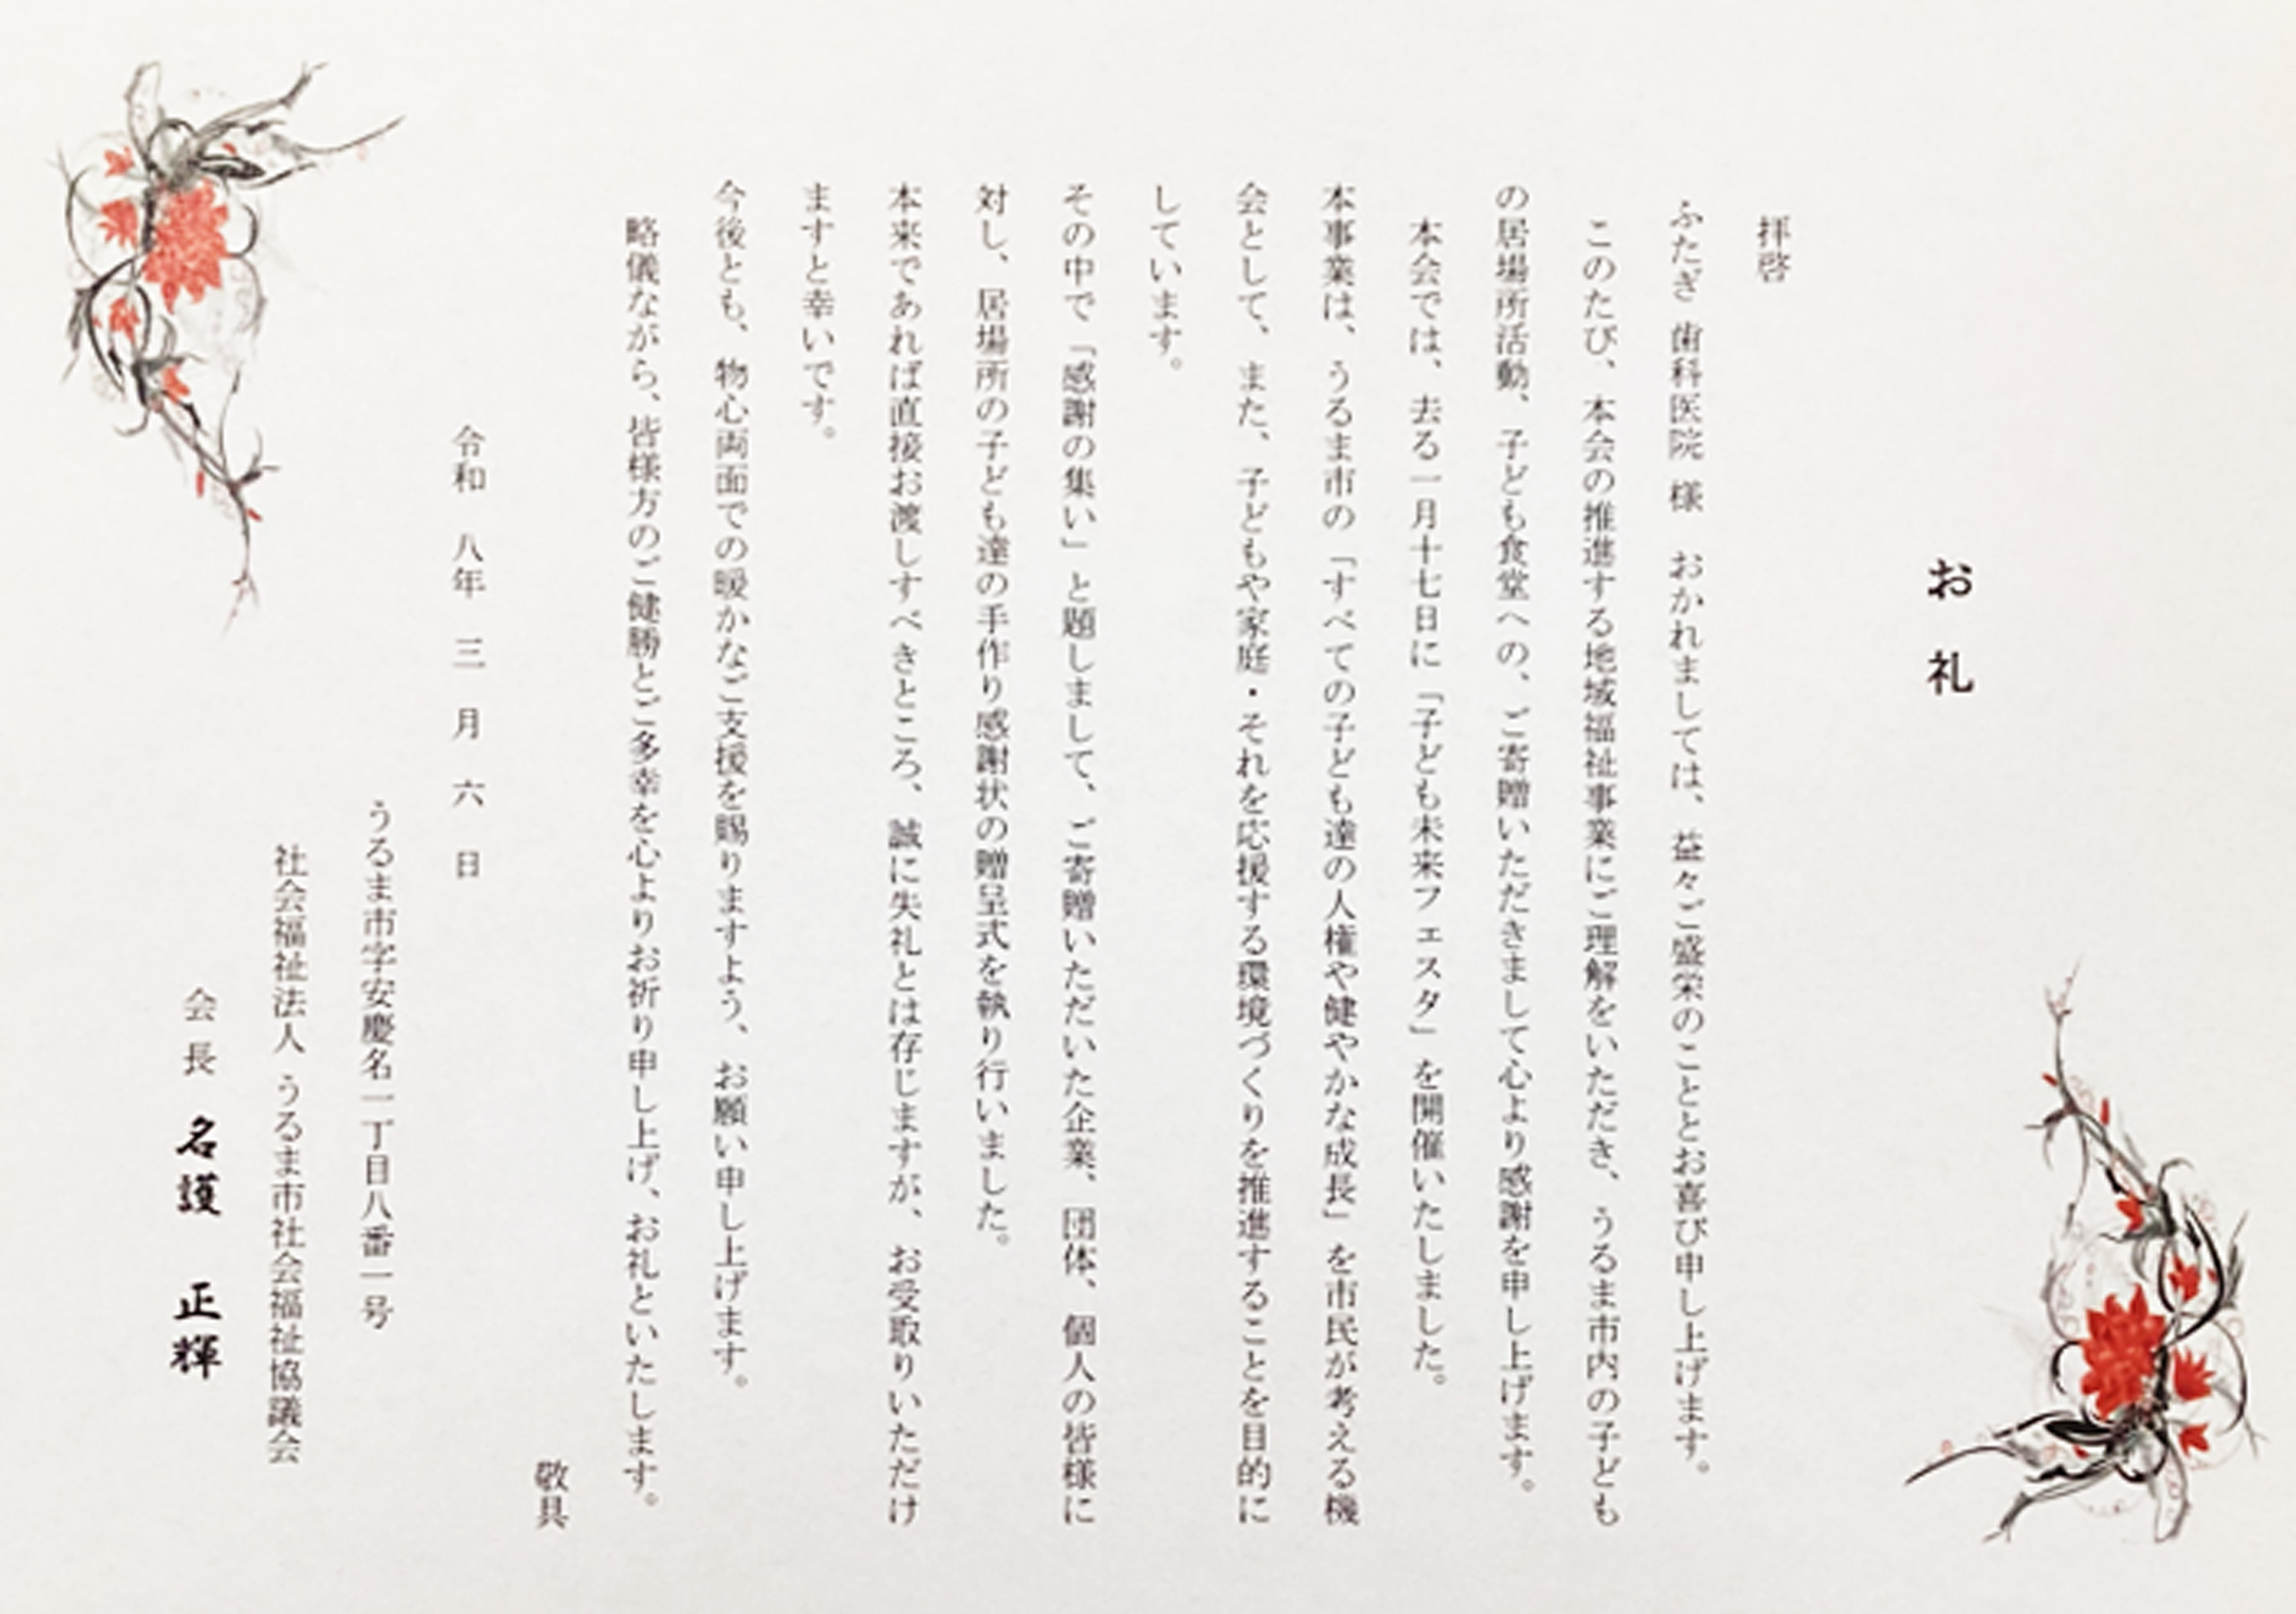 お礼
拝啓
ふたぎ 歯科医院 様 おかれましては、益々ご盛栄のこととお喜び申し上げます。
このたび、本会の推進する地域福祉事業にご理解をいただき、うるま市内の子ども
の居場所活動、子ども食堂への、ご寄贈いただきまして心より感謝を申し上げます。
本会では、去る一月十七日に「子ども未来フェスタ」を開催いたしました。
本事業は、うるま市の「すべての子ども達の人権や健やかな成長」を市民が考える機
会として、また、子どもや家庭・それを応援する環境づくりを推進することを目的に
しています。
その中で「感謝の集い」と題しまして、ご寄贈いただいた企業、団体、個人の皆様に
対し、居場所の子ども達の手作り感謝状の贈呈式を執り行いました。
本来であれば直接お渡しすべきところ、誠に失礼とは存じますが、お受取りいただけ
ますと幸いです。
今後とも、物心両面での暖かなご支援を賜りますよう、お願い申し上げます。
略儀ながら、皆様方のご健勝とご多幸を心よりお祈り申し上げ、お礼といたします。
敬具
令和 八年 三 月 六 日
うるま市字安慶名一丁目八番一号
社会福祉法人 うるま市社会福祉協議会
会長 名護 正輝